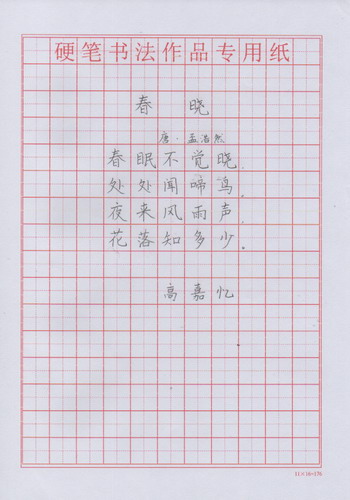 硬笔书法作品专用纸
春 晓
唐·孟浩然
春眠不觉晓.
处处闻啼鸟.
夜来风雨声.
花落知多少.
高嘉忆